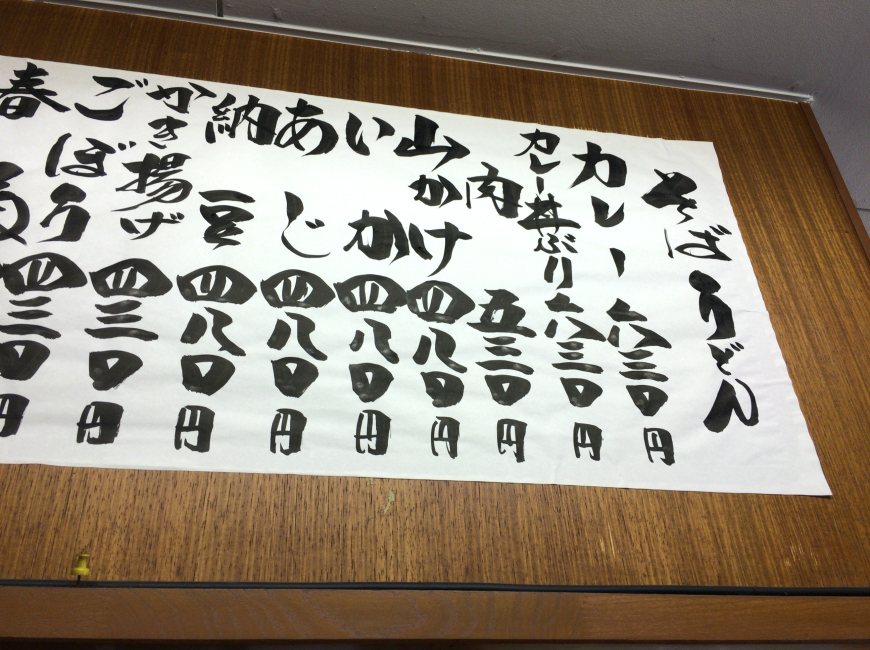 そばうどん
カレー 六三〇円
カレー丼ぶり 六三〇円
肉 五三〇円
山かけ 四八〇円
いか 四八〇円
あじ 四八〇円
納豆 四八〇円
かき揚げ 四三〇円
ごぼう 四三〇円
春